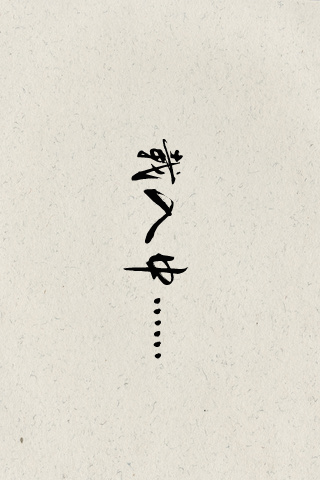 载入中……